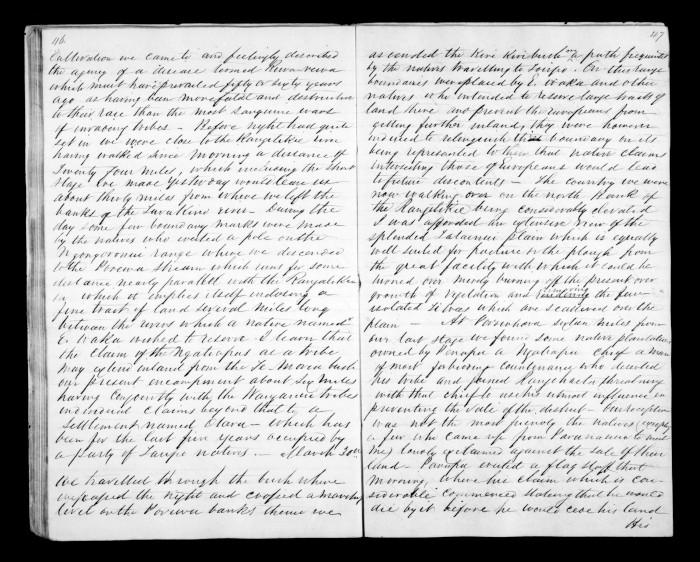 116
cultivation we came to and feelingly described
the agony of a disease termed Rewa rewa
which must have prevailed fifty or sixty years
ago as having been more fatal and destructive
to their race than the most sanguine wars
of invading tribes — Before night had quite
set in we were close to the Rangitikei river
having walked since morning a distance of
Twenty four miles, which including the short
stage we made yesterday would leave us
about thirty miles from where we left the
banks of the river. During the
day some few boundary marks were made
by the natives who erected a pole on the
range where we descended
to the Porewa stream which runs for some
distance nearly parallel with the Rangitikei
in which it empties itself enclosing a
fine tract of land several miles long
between the rivers which a native named
E. Waka wished to reserve I learn that
the claim of the Ngatiapas as a tribe
may extend inland from the Te bush
our present encampment about six miles
having conjointly with the Wanganui tribes
individual claims beyond that to a
settlement named Otara — which has
been for the last five years occupied by
a party of Taupo natives — March 30th
We travelled through the bush where
we passed the night and crossed a
level on the Porewa banks thence we
117
ascended the Kiri Kiri bush on a path frequented
by the natives travelling to Taupo. On this range
boundaries were placed by E. Waka and other
natives who intended to reserve large tracts of
land there and prevent the Europeans from
getting further inland, they were however
induced to relinquish this boundary on its
being represented to them that native claims
intersecting those of Europeans would lead
to future discontents — The country we were
now walking over on the north bank of
the Rangitikei being considerably elevated
I was afforded an extensive view of the
splendid plain which is equally
well suited for pasture or the plough from
the great facility with which it could be
turned over merely burning off the present over
growth of vegetation and removing the few
isolated Ti trees which are scattered over the
plain — At sixteen miles from
our last stage we found some native plantations
owned by Panapa a Ngatiapa chief a man
of most forbidding countenance who deserted
his tribe and joined Rangihaeata threatening
with that chief to use his utmost influence in
preventing the sale of the district — Our reception
was not the most friendly the natives (except
a few who came up from Parawanui to meet
me) loudly exclaimed against the sale of their
land — Panapa erected a flag staff that
morning, where his claim which is con-
siderable commenced stating that he would
die by it before he would cede his land
His